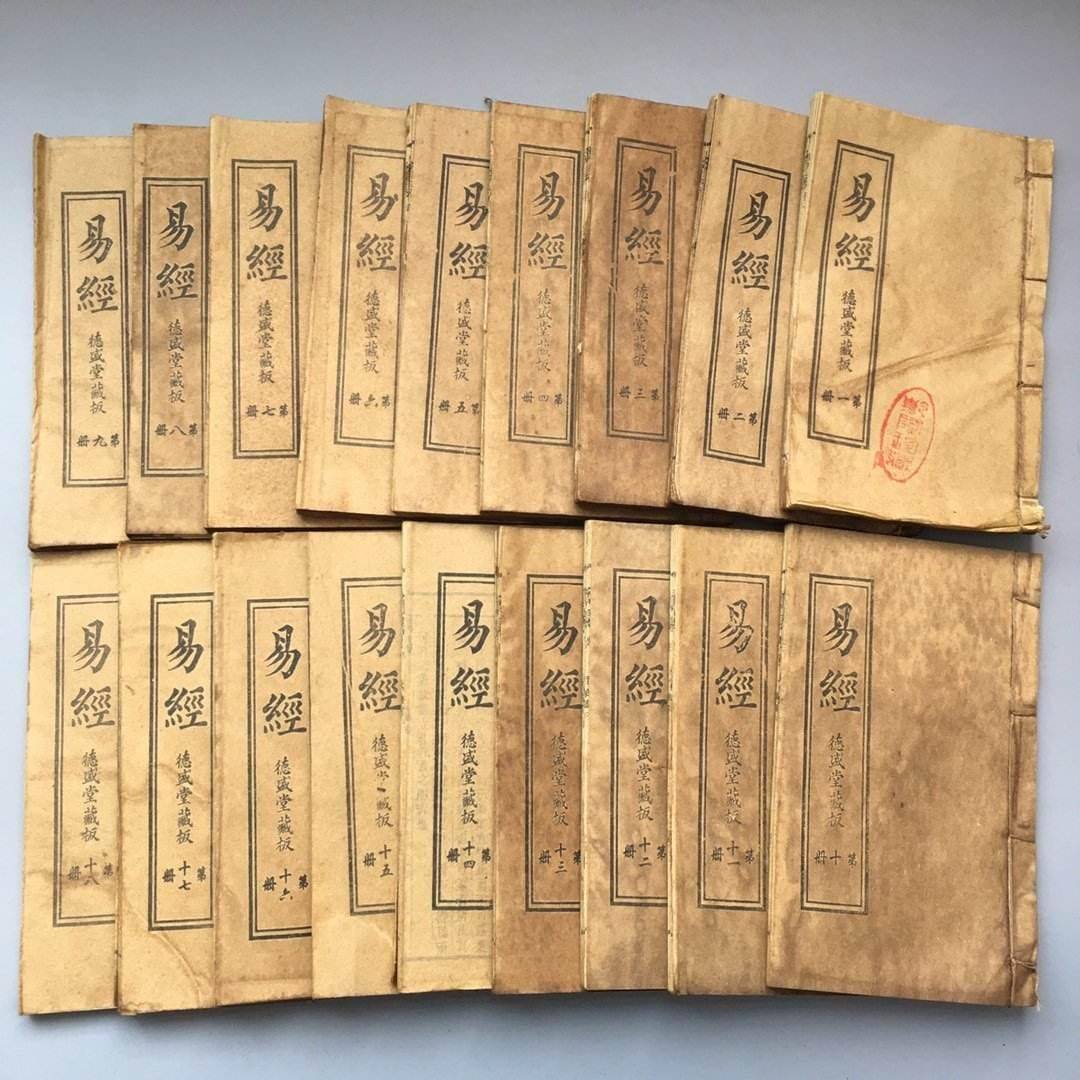 易經 德盛堂藏板
第一冊
易經 德盛堂藏板
第二冊
易經 德盛堂藏板
第三冊
易經 德盛堂藏板
第四冊
易經 德盛堂藏板
第五冊
易經 德盛堂藏板
第六冊
易經 德盛堂藏板
第七冊
易經 德盛堂藏板
第八冊
易經 德盛堂藏板
第九冊
易經 德盛堂藏板
第十冊
易經 德盛堂藏板
第十一冊
易經 德盛堂藏板
第十二冊
易經 德盛堂藏板
第十三冊
易經 德盛堂藏板
第十四冊
易經 德盛堂藏板
十五冊
易經 德盛堂藏板
第十六冊
易經 德盛堂藏板
第十七冊
易經 德盛堂藏板
第十八冊